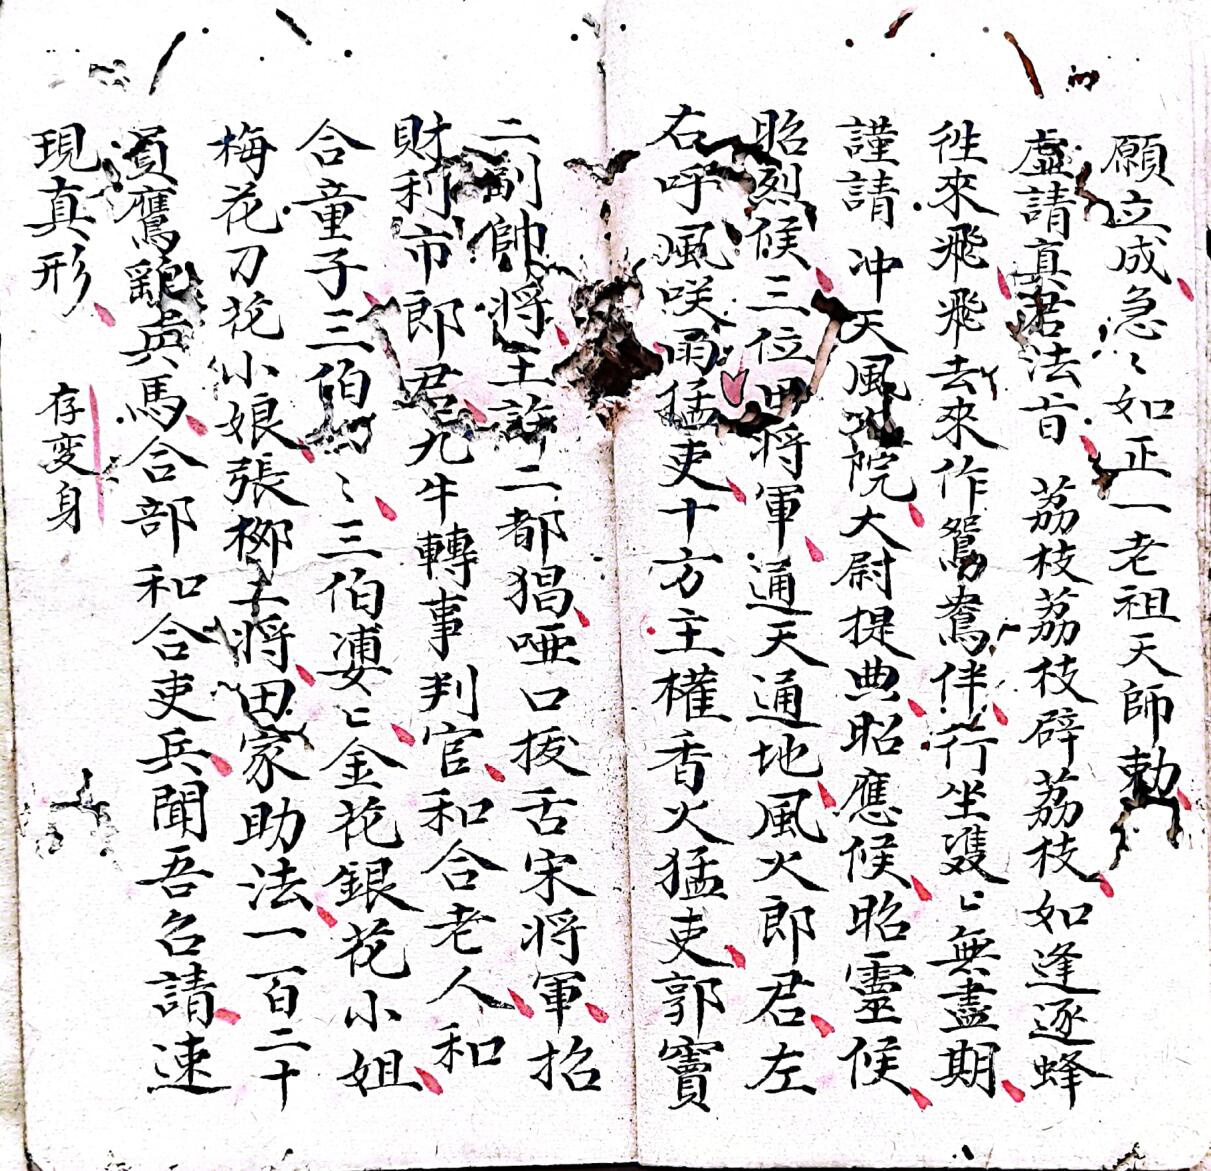 願立成急〻如正一老祖天師勅
虛請真君法旨 荔枝荔枝辟荔枝如逢逐蜂
徃來飛飛去來作鴛鴦伴行坐雙〻無盡期
謹請 冲天風火院大尉提典昭應候昭靈候
昭烈候三位 將軍通天通地風火郎君左
右呼風咲雨猛吏十方主權香火猛吏郭竇
二副帥將王許二都猖啞口拔舌宋將軍招
財利市郎君三九牛轉事判官和合老人和
合童子三伯 〻三伯婆〻金花銀花小姐
梅花刀花小娘張柳二將田家助法一百二十
鷹 兵馬合部和合吏兵聞吾召請速
現真形 存変身